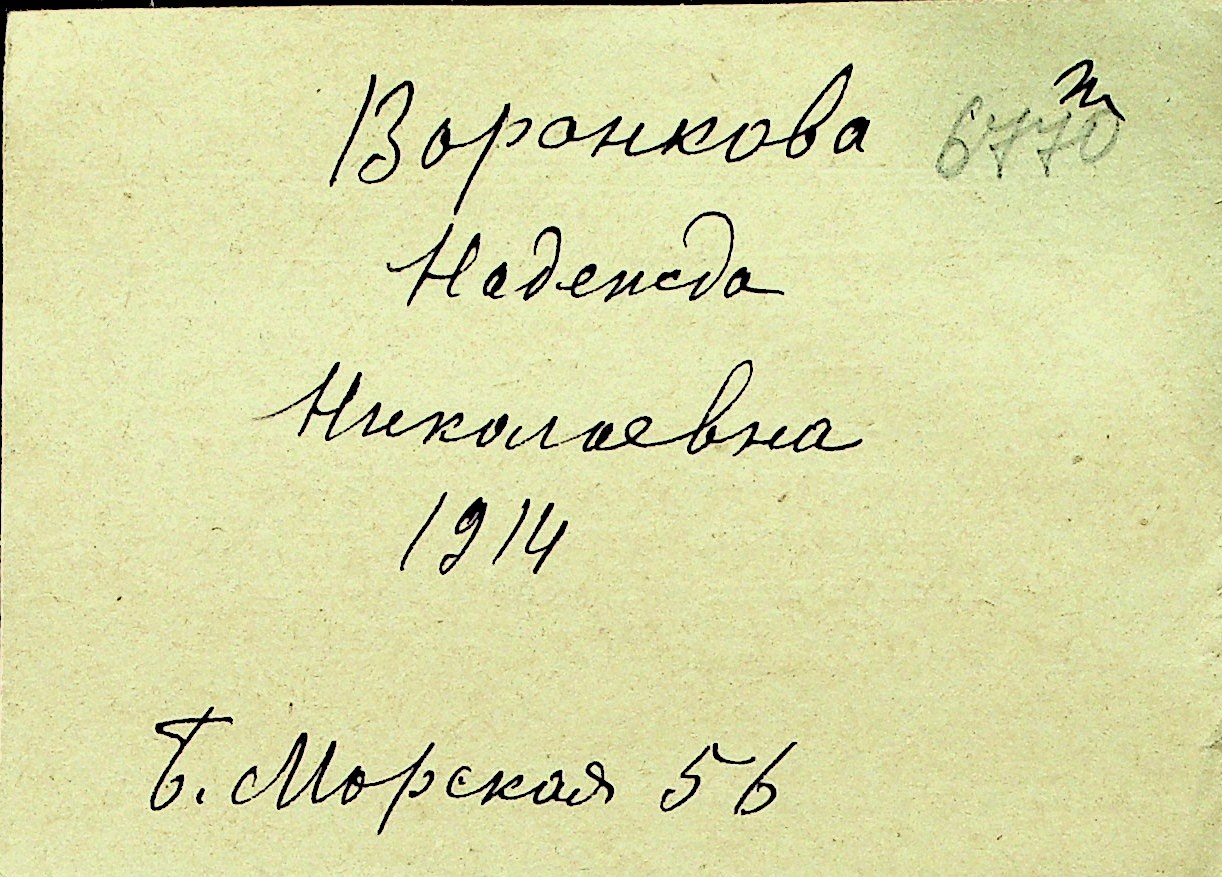 Воронкова 6770
Надежда
Николаевна
1914
Б. Морская 56